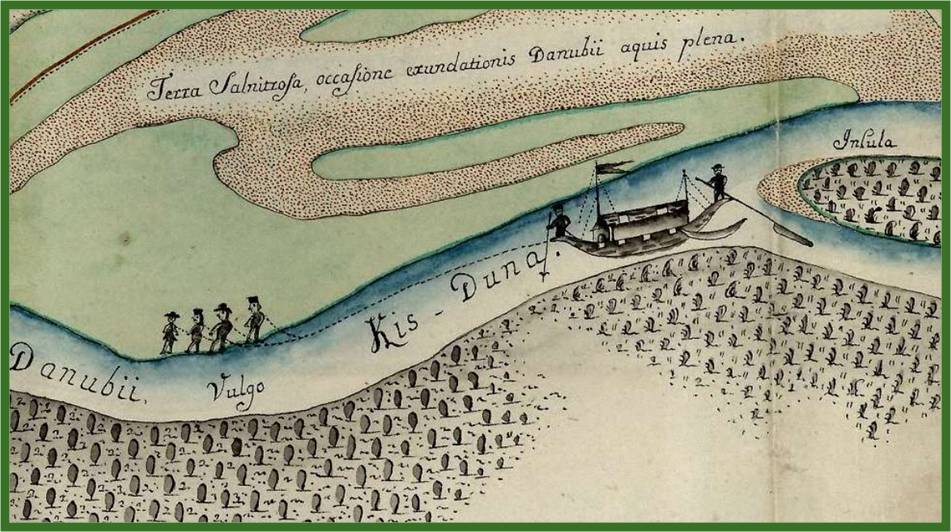 Terra Salnitrosa, occasione exundationis Danubii aquis plena.
Insula
Kis - Duna.
Danubii.
Vulgo